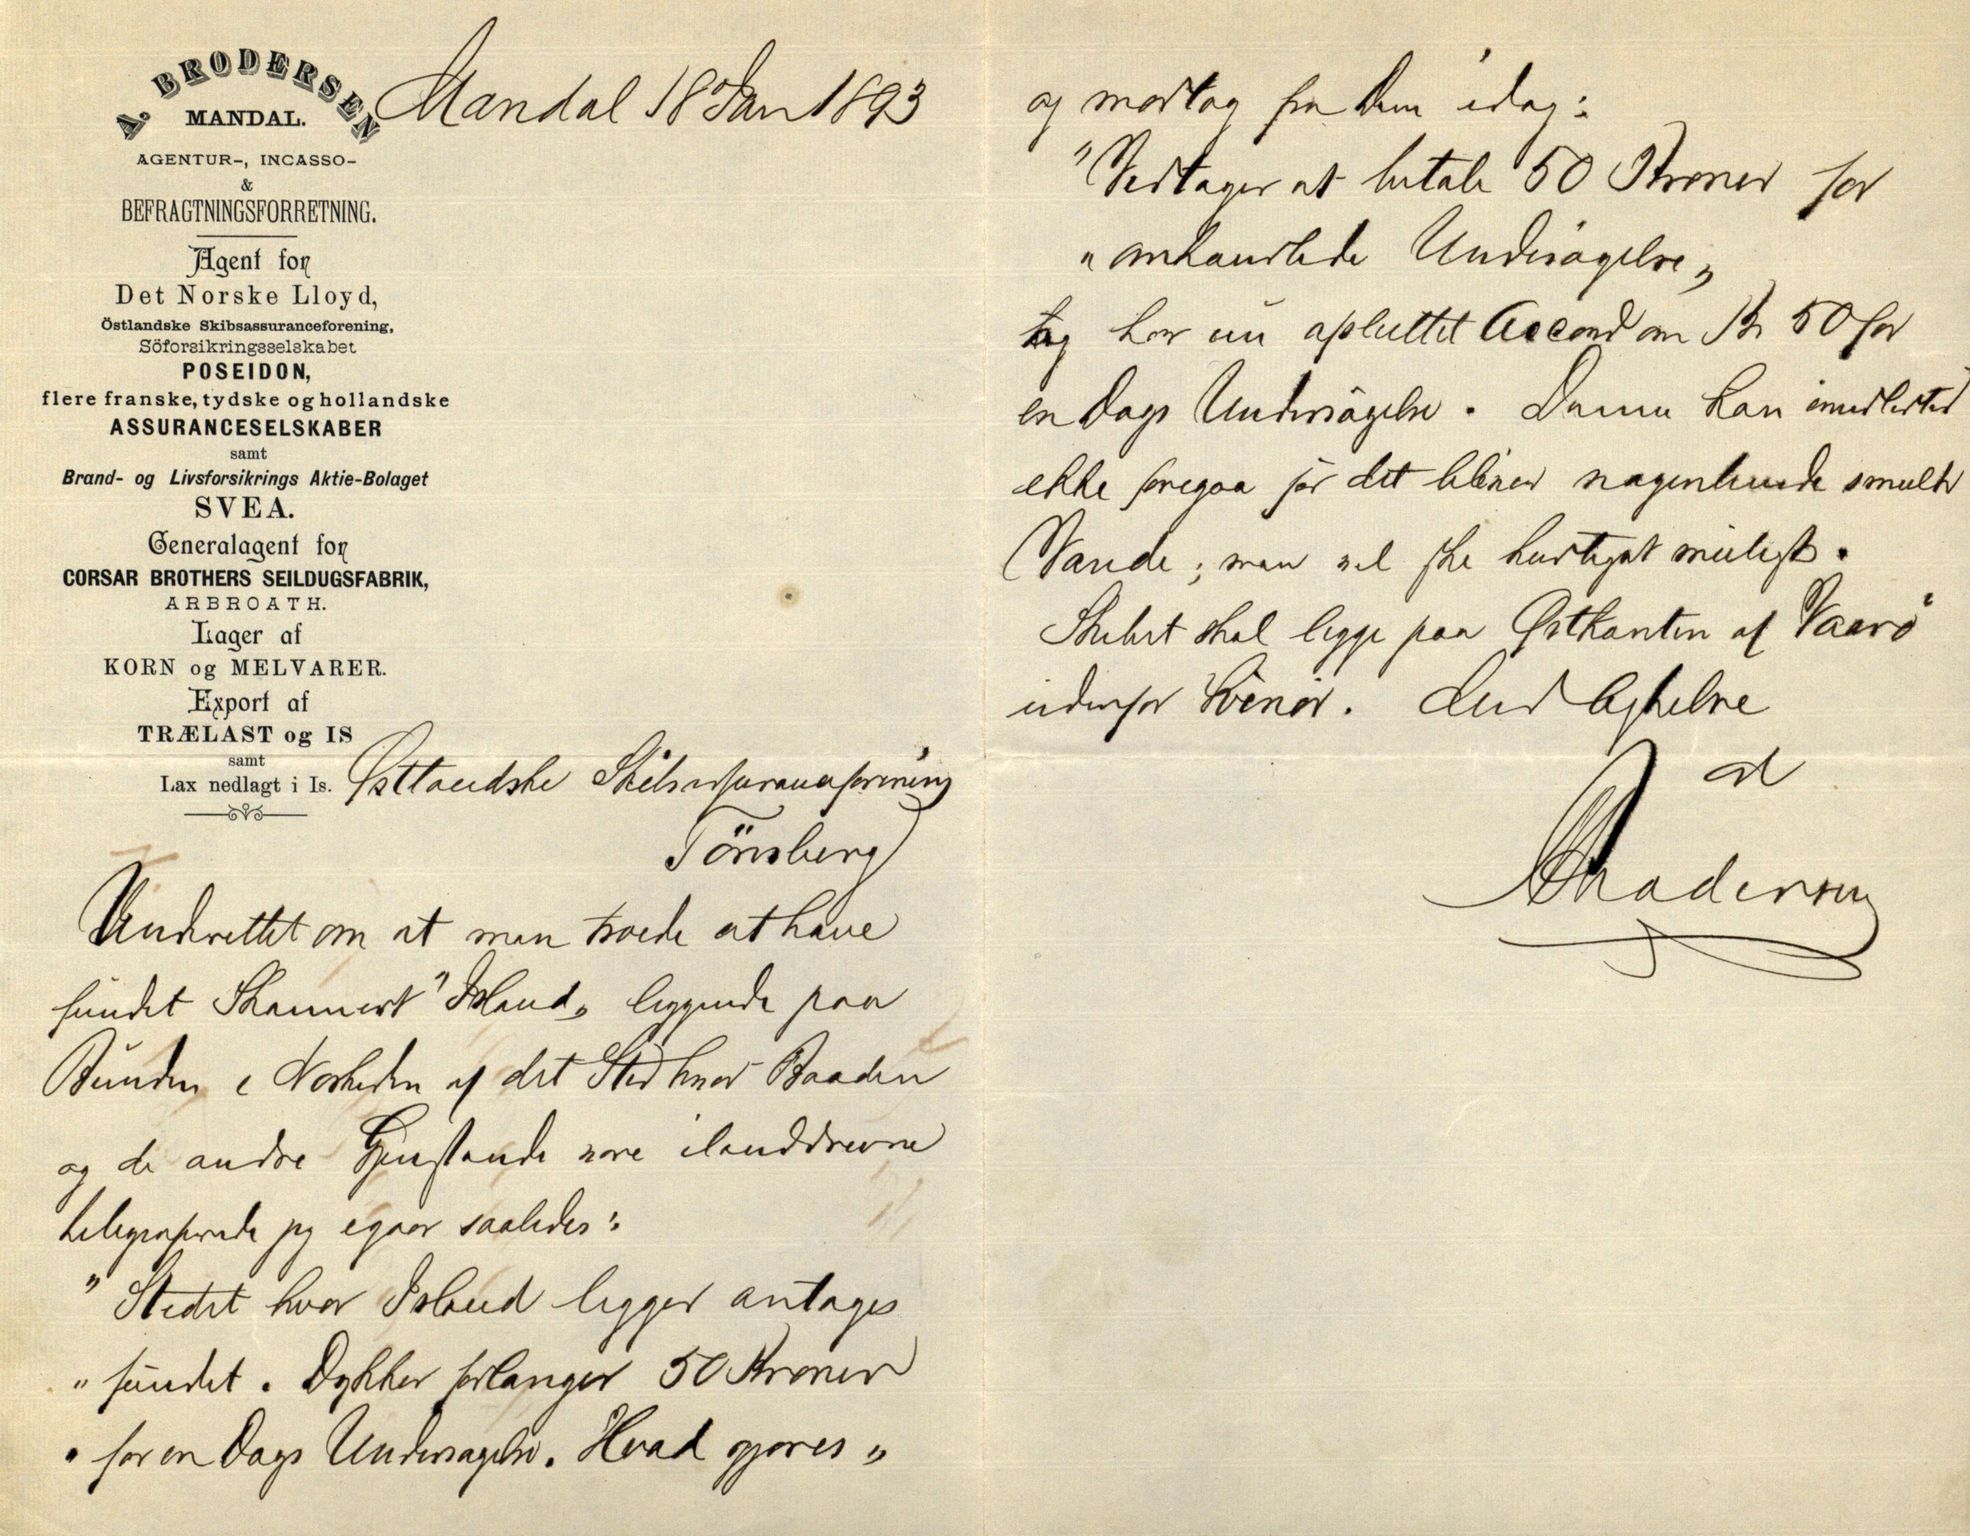 A. BRODERSEN
MANDAL.
AGENTUR-, INCASSO-
&
BEFRAGTNINGSFORRETNING.
Agent for
Det Norske Lloyd,
Östlandske Skibsassuranceforening,
Söforsikringsselskabet
POSEIDON,
flere franske, tydske og hollandske
ASSURANCESELSKABER
samt
Brand- og Livsforsikrings Aktie-Bolaget
SVEA.
Generalagent for
CORSAR BROTHERS SEILDUGSFABRIK,
ARBROATH.
Lager af
KORN og MELVARER.
Export af
TRÆLAST og IS
samt
Lax nedlagt i Is.
Mandal 18 Jan 1893
Østlandske Skibsassuranceforening
Tönsberg
Underrettet om at man troede at have
fundet Skonnert "Island" liggende paa
Bunden i Nærheden af det Sted hvor Baaden
og de andre Gjenstande vare ilanddrevne
telegraferede jeg igaar saaledes:
"Stedet hvor Island ligger antages
" fundet. Dykker forlanger 50 Kroner
" for en Dags Undersøgelse. Hvad gjøres "
og modtog fra Dem idag:
"Vedtager at betale 50 Kroner for
" omhandlede Undersøgelse "
og har nu afsluttet Accord om Kr 50 for
en Dags Undersögelse. Denne kan imidlertid
ikke foregaa før det bliver nogenlunde smult
Vande; men vil ske hurtigst muligt.
Skibet skal ligge paa Østkanten af Vaarö
udenfor Svinør. Med Agtelse
A Brodersen